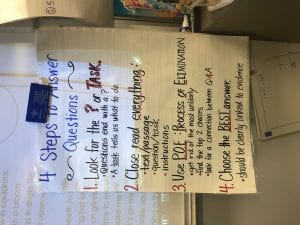 4 Steps to Answer
Questions
1. Look for the ? or TASK.
• Questions end with a ?
• A task tells us what to do.
2. Close read everything:
• text/passage
• question/task
• instructions
3. Use POE: Process of Elimination
• get rid of the most unlikely
• find the top 2 choices
• look for a connection between Q & A
4. Choose the BEST answer.
• should be clearly linked to evidence